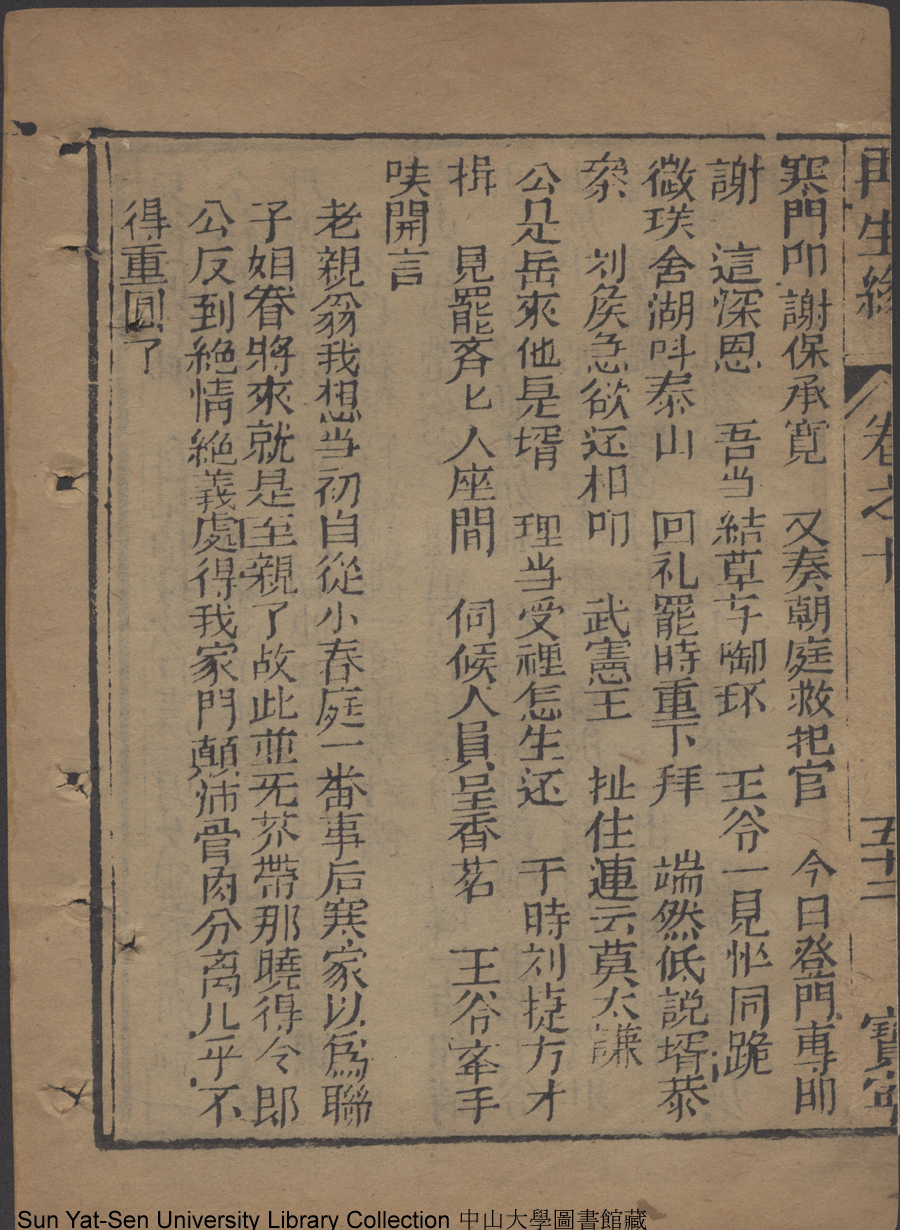 再生緣 卷之十 五十二 寶寧
寒門叩謝保承寬 又奏朝庭救把官 今日登門專叩
謝 這深恩 吾当結草与啣环 王爷一見忙同跪
微 舍湖呌泰山 回礼罷時重下拜 端然低説壻恭
叅 刘侯急欲还相叩 武憲王 扯住連云莫太謙
公是岳來他是壻 理当受禮怎生还 于時刘捷方才
揖 見罷斉匕人座間 伺候人員呈香茗 王爷牽手
咲開言
老親翁我想当初自從小春庭一番事后寒家以爲聯
子姻眷將來就是至親了故此並旡芥帶那曉得令郎
公反到絕情絕義處得我家門顛沛骨肉分离几乎不
得重圓了
Sun Yat-Sen University Library Collection 中山大學圖書館藏